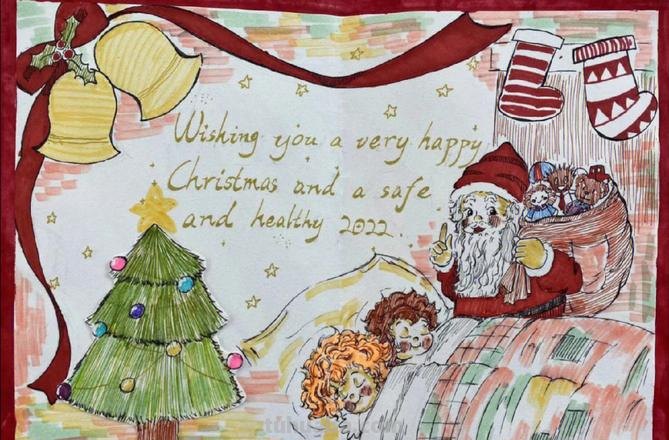 Wishing you a very happy
Christmas and a safe
and healthy 2022.